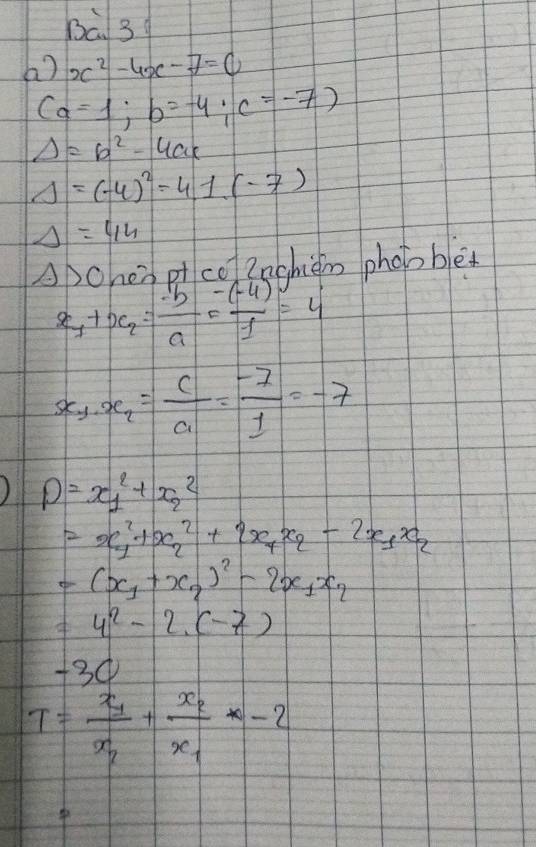 Bài 3:
a) x² - 4x - 7 = 0
(a = 1; b = -4; c = -7)
Δ = b² - 4ac
Δ = (-4)² - 4.1.(-7)
Δ = 44
Δ > 0 nên pt có 2 nghiệm phân biệt
x₁ + x₂ = -b/a = -(-4)/1 = 4
x₁.x₂ = c/a = -7/1 = -7
) D = x₁² + x₂²
= x₁² + x₂² + 2x₁x₂ - 2x₁x₂
= (x₁ + x₂)² - 2x₁x₂
= 4² - 2.(-7)
= 30
T = x₁/x₂ + x₂/x₁ - 2